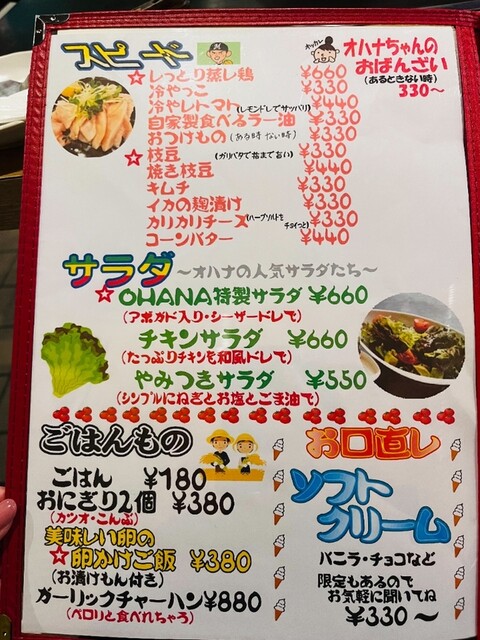 スピード
☆しっとり蒸し鶏 ¥660
冷やっこ ¥330
冷やしトマト(レモンドレでサッパリ) ¥440
自家製食べるラー油 ¥330
おつけもの(ある時ない時) ¥330
☆枝豆(ガリバタで指までおい) ¥330
焼き枝豆 ¥440
キムチ ¥330
イカの麹漬け ¥330
カリカリチーズ(ハーブソルトをチョイっと) ¥330
コーンバター ¥440
オハナちゃんの
おばんざい
(あるときない時)
330～
サラダ ～オハナの人気サラダたち～
☆OHANA特製サラダ ¥660
(アボガド入り・シーザードレで)
チキンサラダ ¥660
(たっぷりチキンを和風ドレで)
やみつきサラダ ¥550
(シンプルにねぎとお塩とごま油で)
ごはんもの
ごはん ¥180
おにぎり2個 ¥380
(カツオ・こんぶ)
美味しい卵の
☆卵かけご飯 ¥380
(お漬けもん付き)
ガーリックチャーハン ¥880
(ペロリと食べれちゃう)
お口直し
ソフト
クリーム
バニラ・チョコなど
限定もあるので
お気軽に聞いてね
¥330～